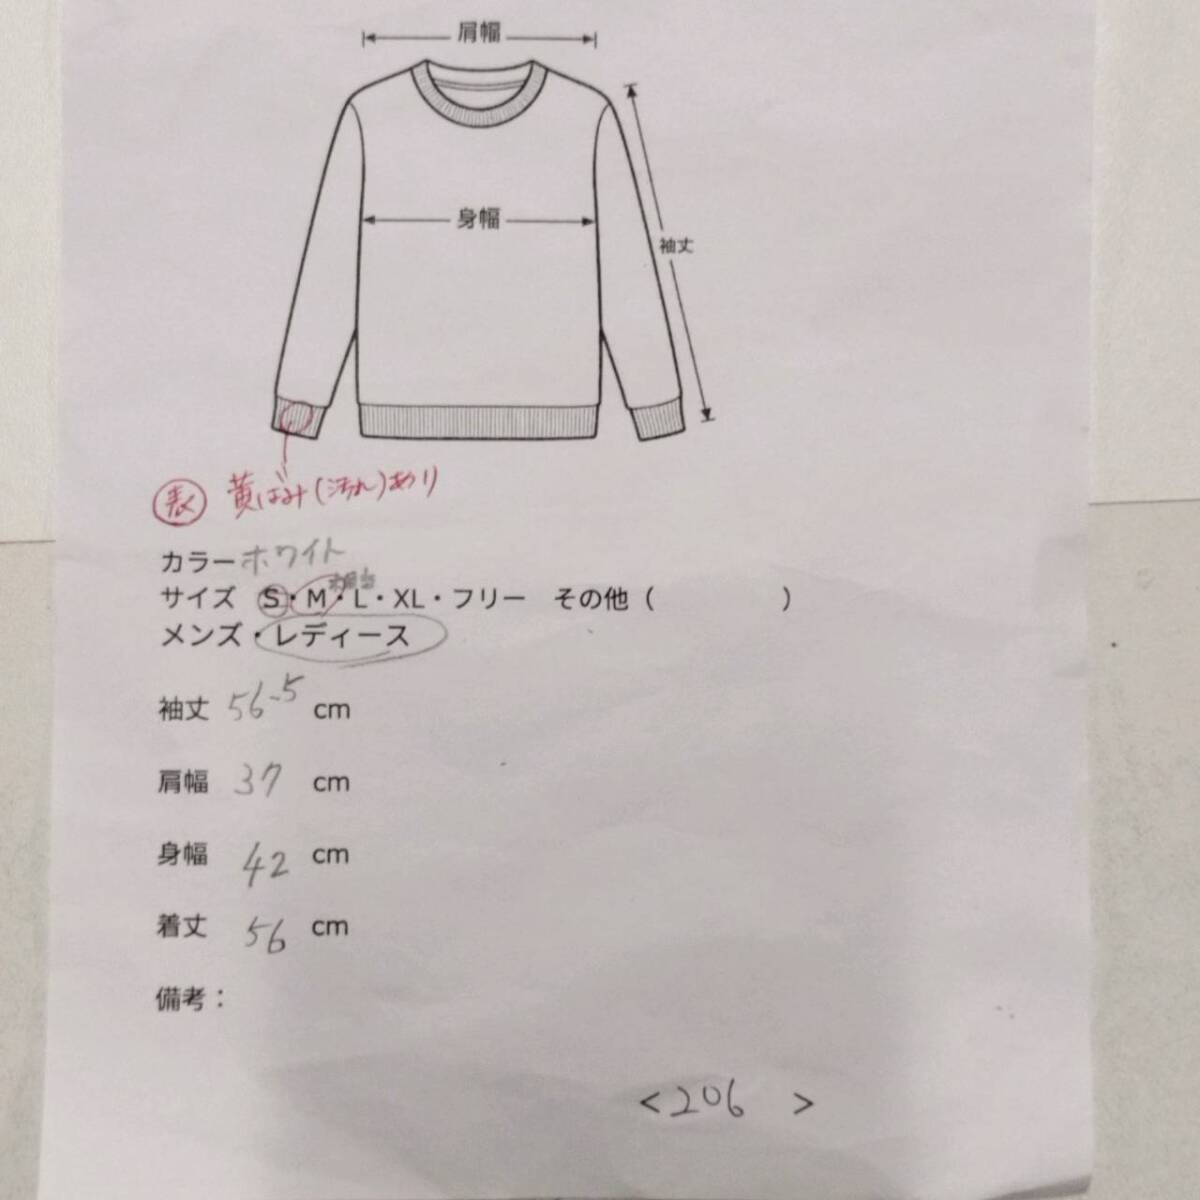 肩幅
身幅
袖丈
表 黄ばみ(汚れ)あり
カラー ホワイト
相当
サイズ S・M・L・XL・フリー その他（ ）
メンズ・レディース
袖丈 56.5 cm
肩幅 37 cm
身幅 42 cm
着丈 56 cm
備考：
<206 >